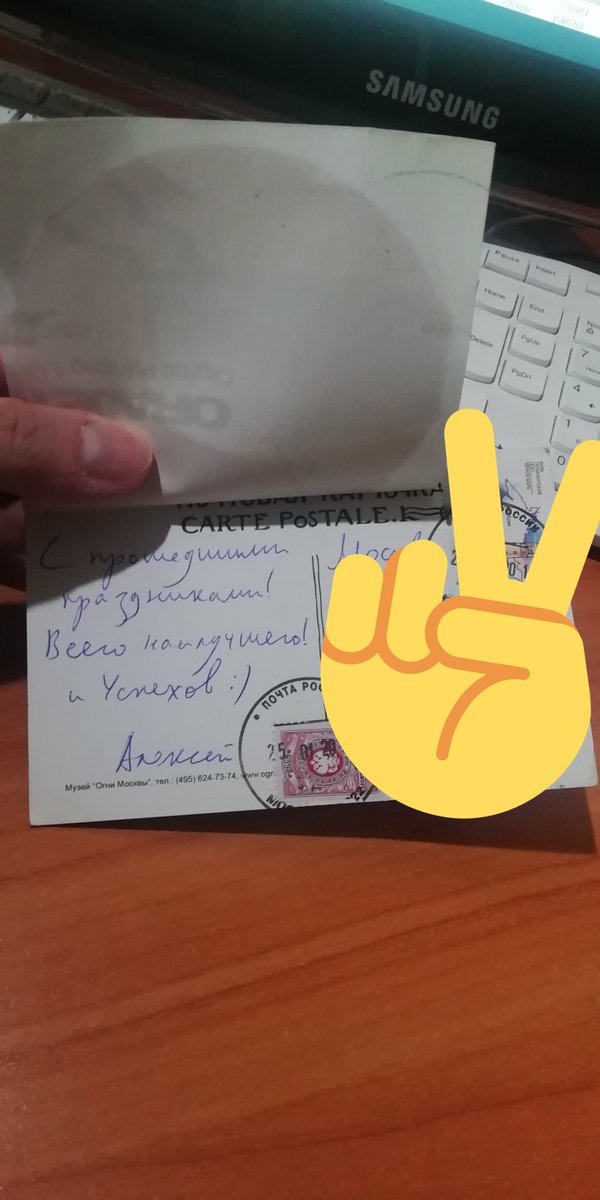 SAMSUNG
Pause
Insert
Home
End
Delete
PgUp
PgDn
7
4
1
ПОЧТОВАЯ КАРТОЧКА
CARTE POSTALE.
С прошедшими
праздниками!
Всего наилучшего!
и Успехов :)
Алексей
ПОЧТА РОС
25 01 20
Музей "Огни Москвы", тел.: (495) 624-73-74, www.ogn